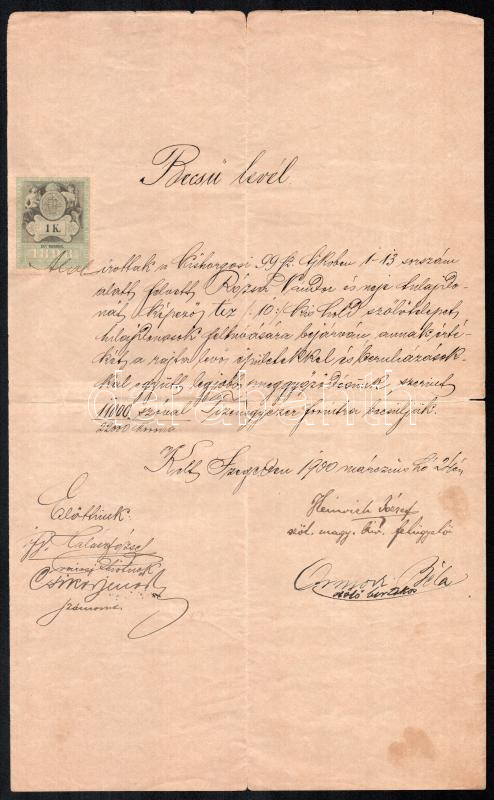 Becsü levél.
1 K.
1898
Alulírottak a Kishorgosi 99 sz. tjkvben 1-13 sorszám
alatt felvett Rózsa Sándor és neje tulajdo-
nát képező tíz /:10:/ kis hold szőlőtelepet
tulajdonosok felhivására bejárván annak érté-
két, a rajta levő épületekkel és beruházások-
kal együtt legjobb meggyőződésünk szerint
11000, szóval Tizenegyezer forintra becsüljük.
22000 korona
Kelt Szegeden 1900 március hó
Előttünk:
Heinrich József
szől. magy. kir. felügyelő
Béla
szőlő birtokos
darabanth